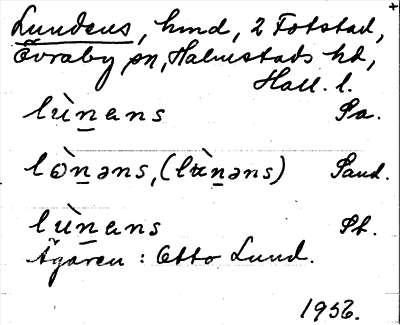 Lundens, hmd, 2 Totstad,
Övraby sn, Halmstads hd,
Hall. l.
lùn̲ens Pa.
lɷ̀n̲əns, (lùn̲əns) Sand.
lùn̲ens Pf.
Ägaren: Otto Lund.
1956.